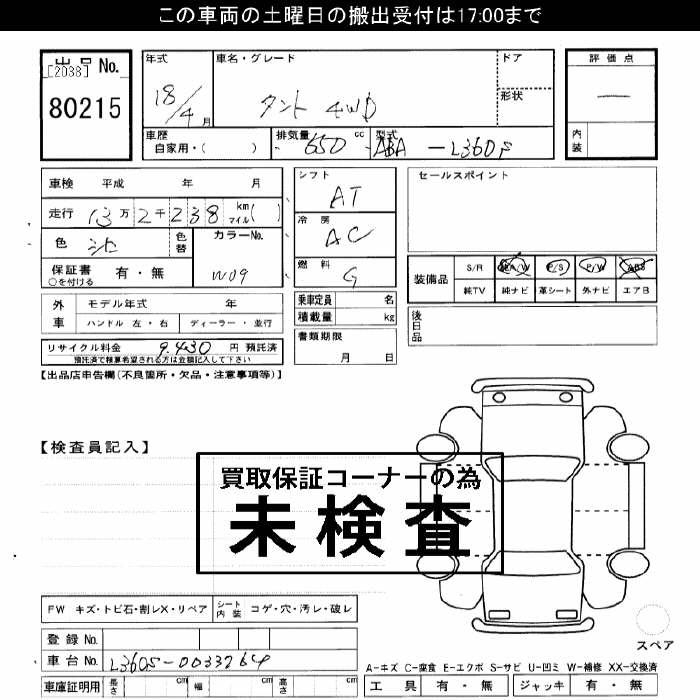 この車両の土曜日の搬出受付は17:00まで
出品 No.
[2038]
80215
年式
18/4 月
車名・グレード
タント 4WD
ドア
形状
評価点
—
内装
車歴
自家用・( )
排気量 650 cc
型式 ABA -L360S
車検 平成 年 月
走行 13万2千238 km マイル( )
色 シロ
色替
カラーNo.
W09
保証書 有・無
○を付ける
シフト
AT
冷房
AC
燃料
G
セールスポイント
装備品
S/R A/W P/S P/W ABS
純TV 純ナビ 革シート 外ナビ エアB
外車
モデル年式 年
ハンドル 左・右 ディーラー・並行
乗車定員 名
積載量 kg
後日品
リサイクル料金 9,430 円 預託済
預託済で精算希望される方は金額記入して下さい
書類期限
月 日
【出品店申告欄(不良箇所・欠品・注意事項等)】
【検査員記入】
買取保証コーナーの為
未検査
FW キズ・トビ石・割レX・リペア
シート内装 コゲ・穴・汚レ・破レ
登録No.
車台No. L360S-0033264
スペア
A-キズ C-腐食 E-エクボ S-サビ U-凹ミ W-補修 XX-交換済
車庫証明用 長さ cm 幅 cm 高さ cm
工具 有・無 ジャッキ 有・無